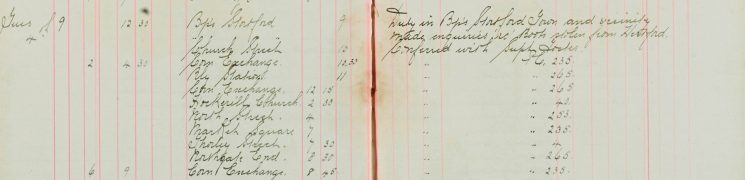 Tues 9 12 30 Bps Stortford 9 Duty in Bps Stortford Town and vicinity
4 made enquiries re Book stolen from Stortford.
Church Street 10 Conferred with Supt Foster.
2 4 30 Corn Exchange. 10.30 " P.C. 235.
Rly Station 11 " 265.
Corn Exchange. 12 15 " 265
Hockerill Church 2 30 " 4.
North Street. 4 " 253.
Market Square 7 " 235.
Thorley Street. 7 30 " 4
Northgate End. 8 30 " 265.
6 9 Corn Exchange. 8 45 " 235.